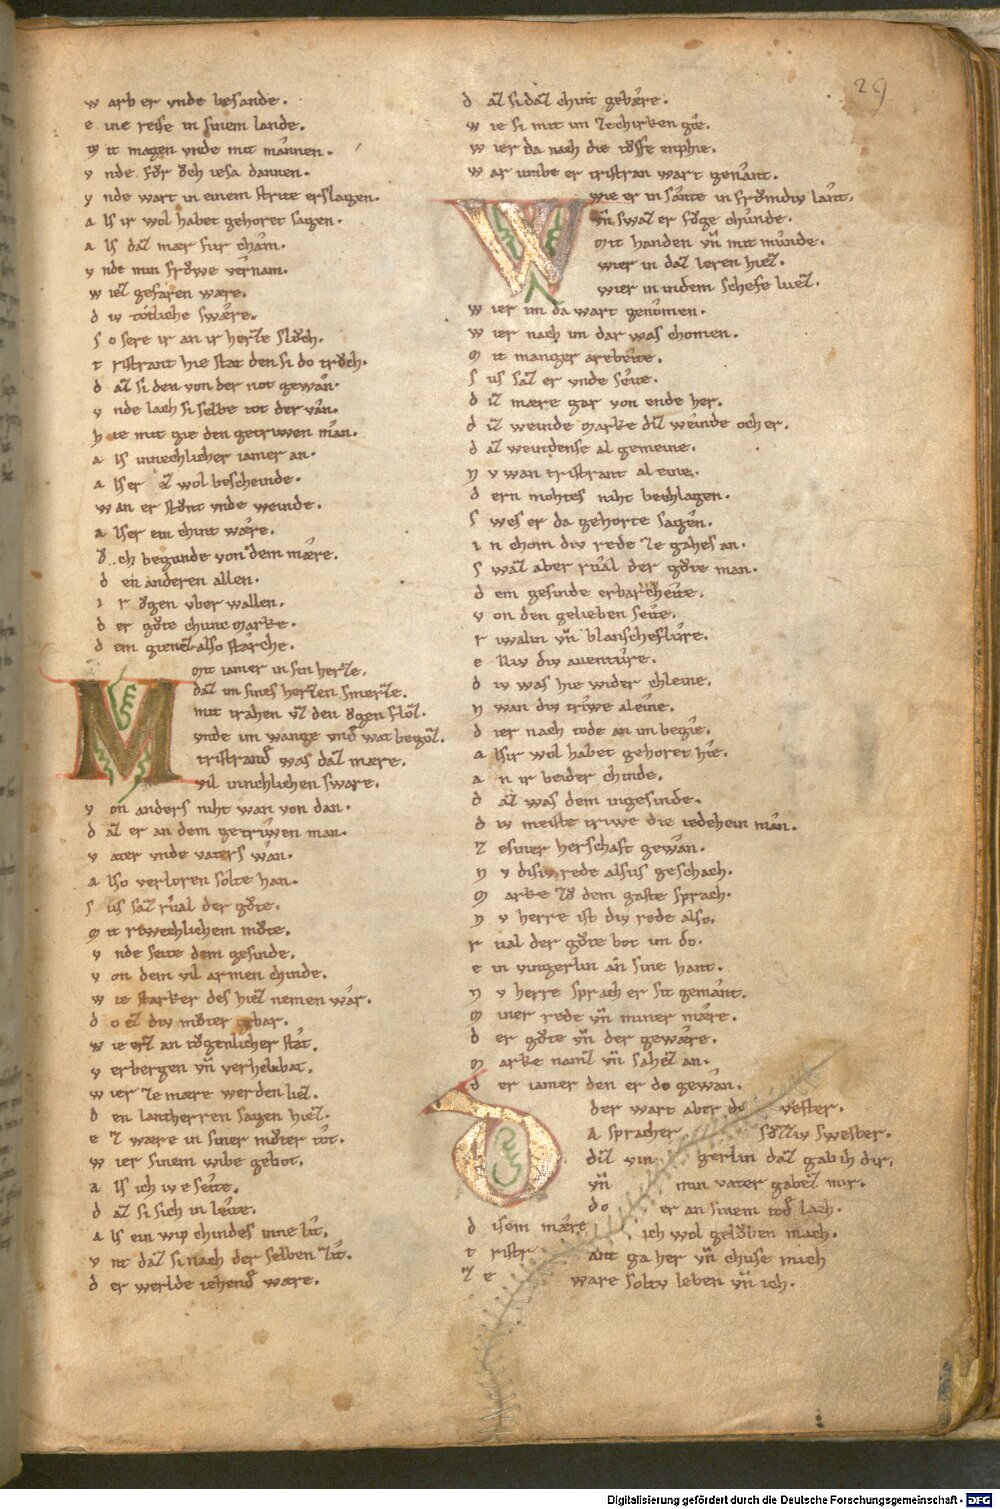 29
w arb er vnde besande.
e ine reise in sinem lande.
m it magen vnde mit mannen.
v nde fŏr ŏch iesa dannen.
v nde wart in einem strite erslagen.
a ls ir wol habet gehoret sagen.
a ls daz mær fur cham.
v nde min frŏwe vernam.
w iez gefaren wære.
d iv totliche swære.
s o sere ir an ir herze slŏch.
t ristrant hie stat den si do trŏch.
d az si den von der not gewan.
v nde lach si selbe tot der van.
h ie mit gie den getriwen man.
a ls innechlicher iamer an.
a lser ez wol bescheinde.
w an er stŏnt vnde weinde.
a lser ein chint wære.
ŏ ch begunde von dem mære.
d en anderen allen.
i r ŏgen vber wallen.
d er gŏte chunc marke.
d em gienez also starche.
Mit iamer in sin herze.
daz im sines herzen smerze.
mit trahen vz den ŏgen flŏz.
vnde im wange vnd wat begŏz.
tristrand was daz mære.
vil innchlichen sware.
v on anders niht wan von dan.
d az er an dem getriwen man.
v ater vnde vaters wan.
a lso verloren solte han.
s us saz rual der gŏte.
m it riwechlichem mŏte.
v nde seite dem gesinde.
v on dem vil armen chinde.
w ie starker des hiez nemen war.
d o ez div mŏter gebar.
w ie erz an tŏgenlicher stat.
v erbergen vn̄ verheln bat.
w ier ze mære werden liez.
d en lantherren sagen hiez.
e z ware in siner mŏter tot.
w ier sinem wibe gebot.
a ls ich iv e seite.
d az si sich in leite.
a ls ein wip chindes inne lit.
v nt daz si nach der selben zit.
d er werlde iehend wære.
d az si daz chint gebære.
w ie si mit im ze chirken gie.
w ier da nach die tŏffe enphie.
w ar umbe er tristran wart genant.
Wie er in sante in frŏmdiv lant.
vn̄ swaz er fŏge chunde.
mit handen vn̄ mit munde.
wier in daz leren hiez.
wier in in dem schefe liez.
w ier im da wart genomen.
w ier nach im dar was chomen.
m it manger arebeite.
s us saz er vnde seite.
d iz mære gar von ende her.
d iz weinde marke diz weinde och er.
d az weindense al gemeine.
n v wan tristrant al eine.
d ern mohtes niht bechlagen.
s wes er da gehorte sagen.
i n chom div rede ze gahes an.
s waz aber rual der gŏte man.
d em gesinde erbarcheite.
v on den gelieben seite.
r iwalin vn̄ blanscheflure.
e lliv div auenture.
d iv was hie wider chleine.
n wan div triwe aleine.
d ier nach tode an im begie.
a lsir wol habet gehoret hie.
a n ir beider chinde.
d az was dem ingesinde.
d iv meiste triwe die iedehein man.
z esiner herschaft gewan.
n v disiv rede alsus geschach.
m arke zŏ dem gaste sprach.
n v herre ist div rede also.
r ual der gŏte bot im do.
e in vingerlin an̄ sine hant.
n v herre sprach er sit gemant.
m iner rede vn̄ miner mære.
d er gŏte vn̄ der gewære.
m arke namz vn̄ sahez an.
d er iamer den er do gewan.
Der wart aber do vester.
a sprach er sŏzziv swester.
diz vin gerlin daz gab ih dir.
vn̄ min vater gabez mir.
do er an sinem tod lach.
d isom mære ich wol gelŏben mach.
t ristr ant ga her vn̄ chuse mich
z e ware soltv leben vn̄ ich.
Digitalisierung gefördert durch die Deutsche Forschungsgemeinschaft - DFG